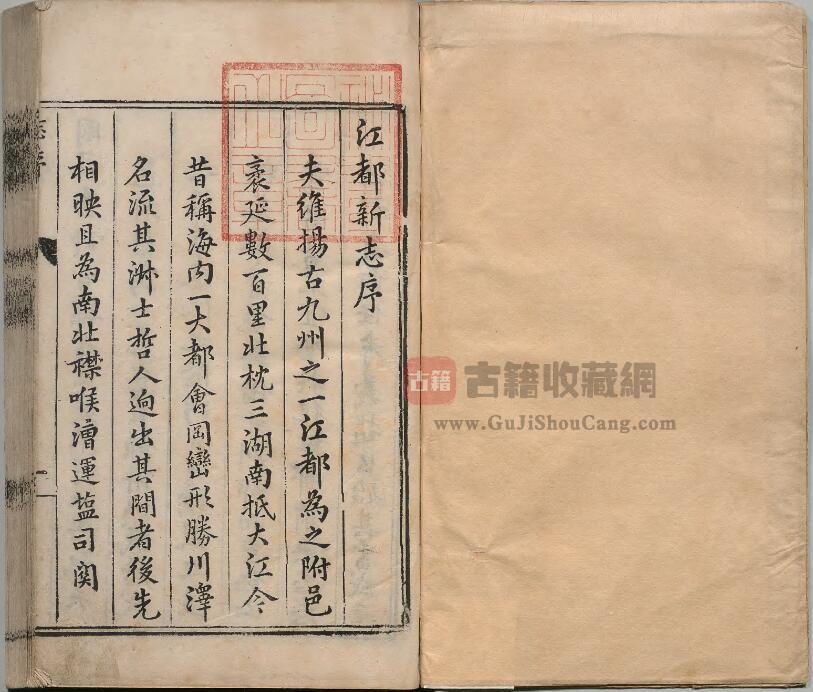 江都新志序
夫維揚古九州之一江都為之附邑
袤延數百里北枕三湖南抵大江今
昔稱海内一大都會岡巒形勝川澤
名流其淋士哲人逈出其間者後先
相映且為南北襟喉漕運塩司関
志序
一
古籍
古籍收藏網
www.GuJiShouCang.com